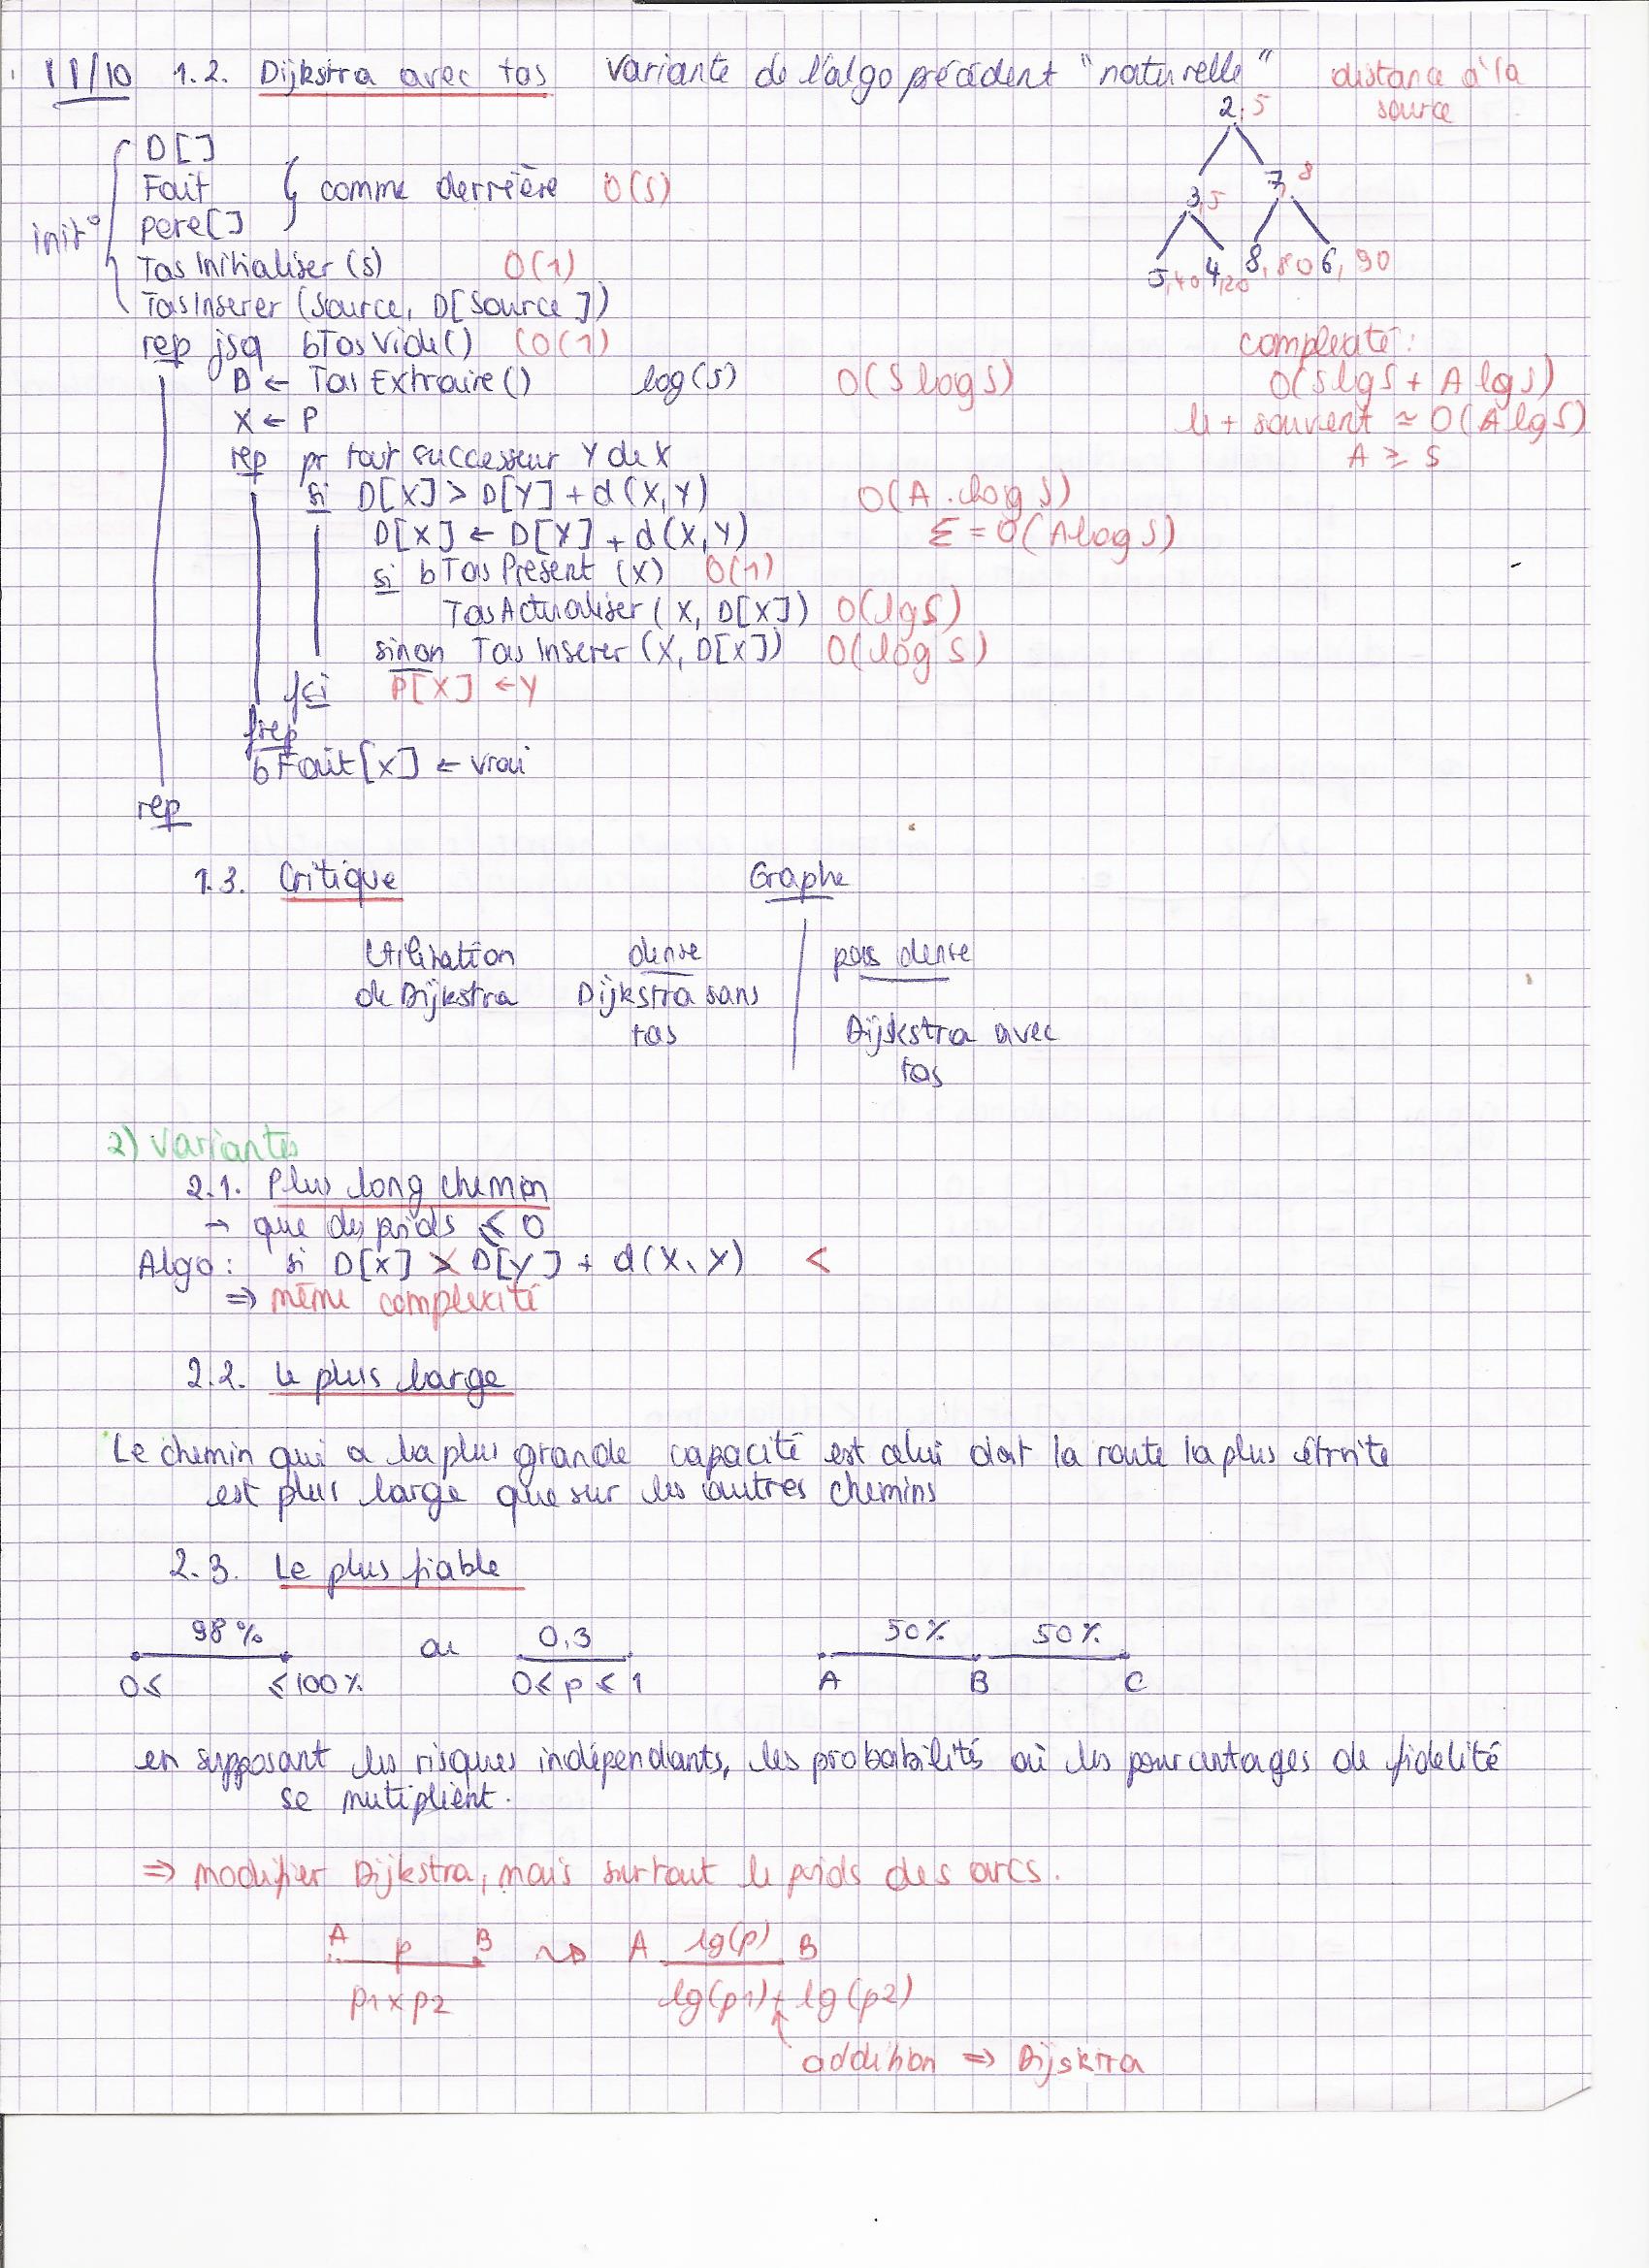 11/10 1.2. Dijkstra avec tas Variante de l'algo précédent "naturelle"
distance à la
source
2,5
3,5 7,8
5,40 4,20 8,80 6,90
init°
D[]
Fait comme derrière O(S)
pere[]
Tas Initialiser (S) O(1)
TasInserer (Source, D[Source])
rep jsq bTasVide() (O(1)
← Tas Extraire() log(S) O(S log S)
X ← P
rep pr tout successeur Y de X
si D[X] > D[Y] + d(X,Y) O(A.log S)
D[X] ← D[Y] + d(X,Y) Σ = O(A log S)
si bTas Present (X) O(1)
TasActualiser (X, D[X]) O(lgS)
sinon Tas Inserer (X, D[X]) O(log S)
fsi P[X] ← Y
frep
bFait[X] ← vrai
rep
complexité:
O(SlgS + A lgS)
le + souvent ≈ O(A lgS)
A ≥ S
1.3. Critique Graphe
Utilisation dense pas dense
de Dijkstra Dijkstra sans
tas Dijskstra avec
tas
2) Variantes
2.1. Plus long chemin
→ que des poids ≤ 0
Algo: si D[X] > D[Y] + d(X,Y) <
⇒ même complexité
2.2. Le plus large
Le chemin qui a la plus grande capacité est celui dont la route la plus étroite
est plus large que sur les autres chemins
2.3. Le plus fiable
98% ou 0,3 50% 50%
0≤ ≤100% 0≤p≤1 A B C
en supposant les risques indépendants, les probabilités où les pourcentages de fidelité
se mutiplient.
⇒ modifier Dijkstra, mais surtout le poids des arcs.
A p B ⇝ A lg(p) B
p1xp2 lg(p1)+lg(p2)
addition ⇒ Dijsktra